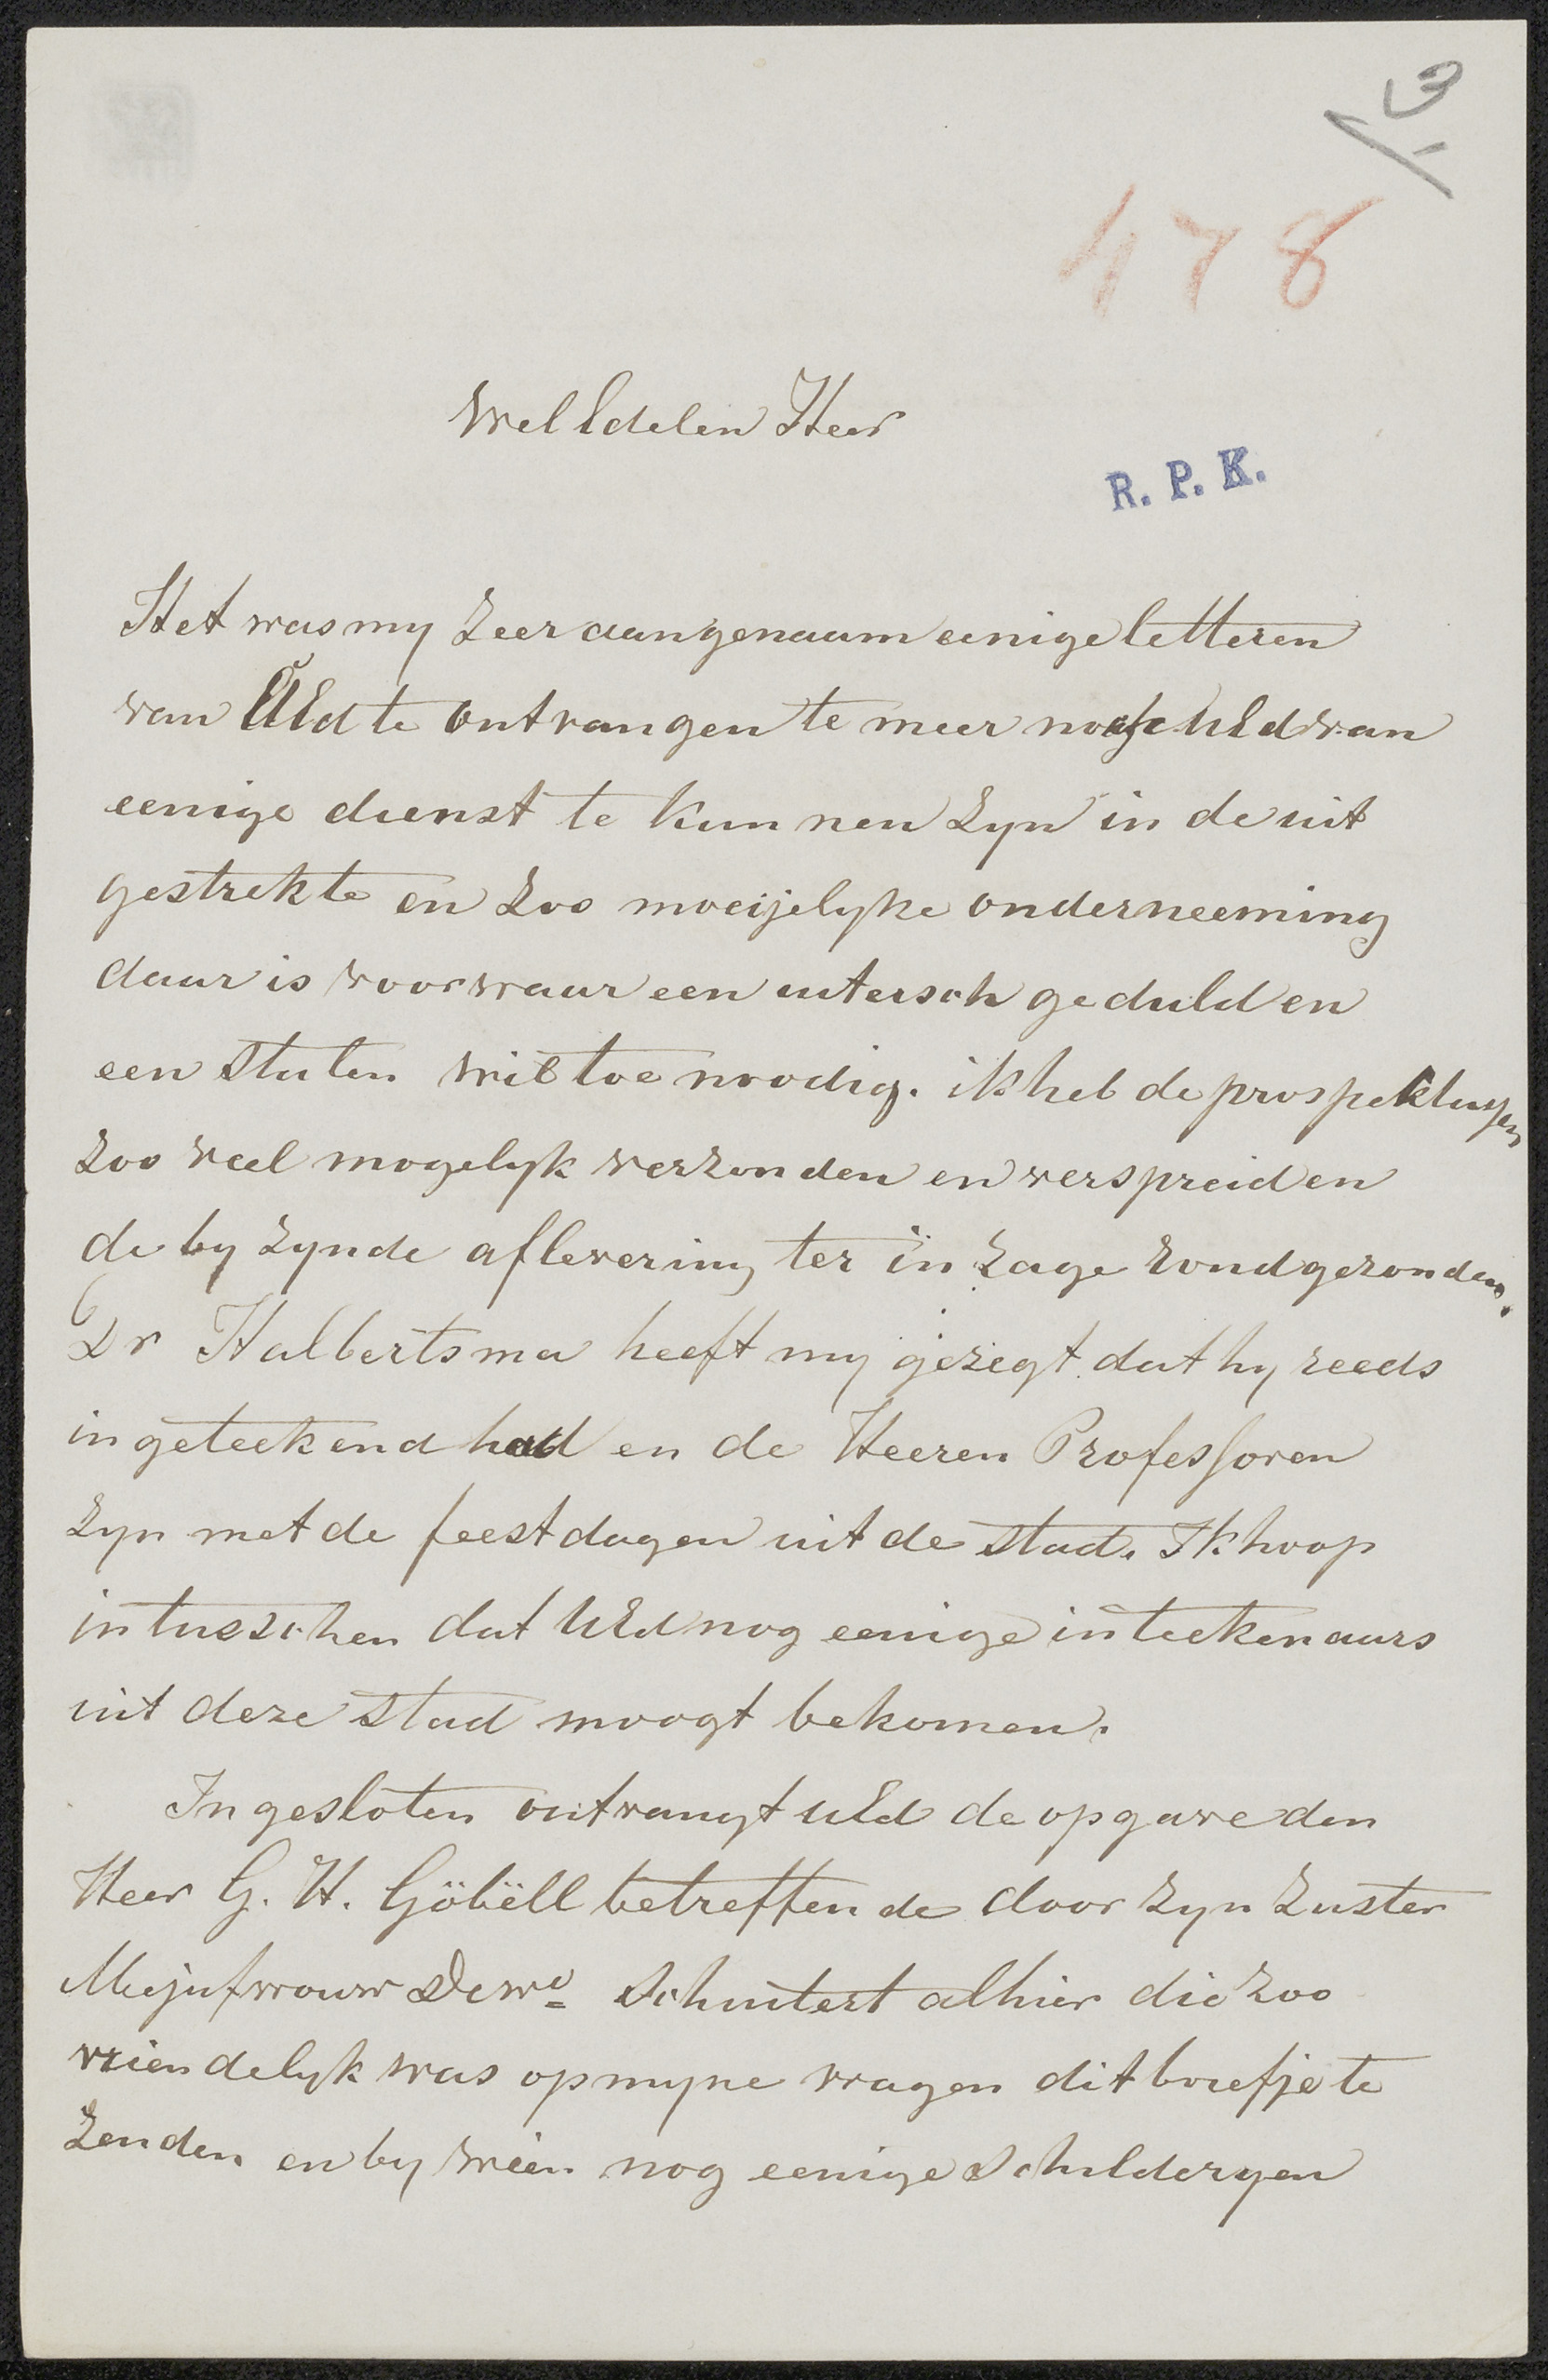 3
1
478
WelEdelen Heer
R. P. K.
Het was my zeer aangenaam eenige letteren
van UEd te ontvangen te meer nog UEd van
eenige dienst te kunnen zyn in de uit
gestrekte en zoo moeijelyke onderneeming
daar is voorwaar een uitersch geduld en
een stalen wil toe noodig. ik heb de prospektussen
zoo veel mogelyk verzonden en verspreid en
de by zynde aflevering ter inzage rondgezonden.
Dr Halbertsma heeft my gezegt dat hy reeds
ingeteekend had en de Heeren Professoren
zyn met de feestdagen uit de stad. Ik hoop
intusschen dat UEd nog eenige inteekenaars
uit deze stad moogt bekomen.
Ingesloten ontvangt UEd de opgave den
Heer G. H. Göbëll betreffende door zyn zuster
Mejufvrouw De We Schutert alhier die zoo
vriendelyk was op myne vragen dit briefje te
zenden en by wien nog eenige schilderyen